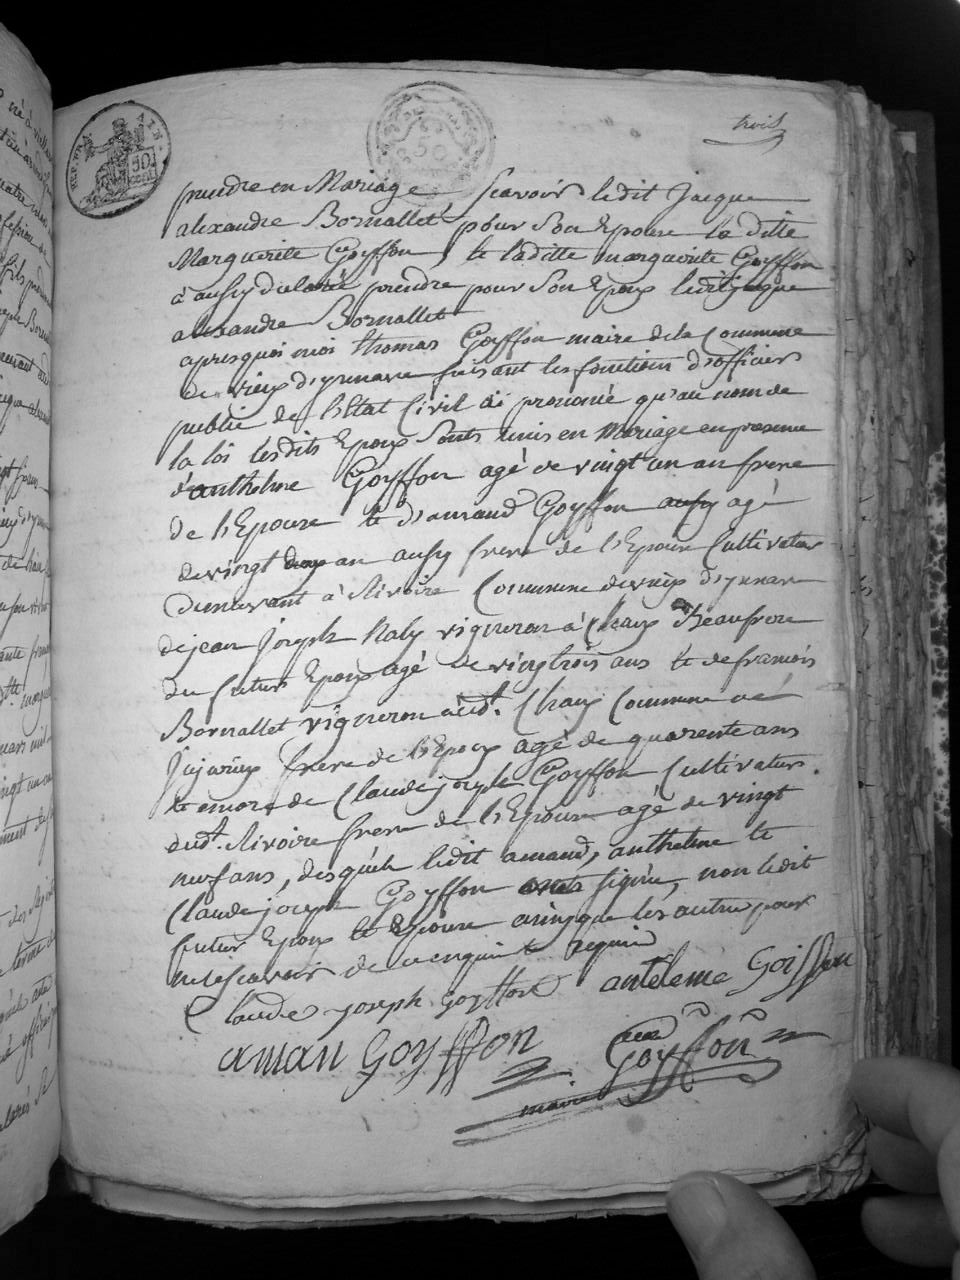 trois
REP. FRA. AIN.
50 cent
50
prendre en Mariage scavoir ledit Jacque
alexandre Bornallet pour Son Epouse la ditte
Marguerite Goyffon, et laditte marguerite Goyffon
à aussy déclaré prendre pour Son Epoux ledit jacque
alexandre Bornallet
apres quoi moi thomas Goyffon maire de la Commune
de vieux d'yzenave faisant les fonctions d'officier
public de l'Etat Civil ai prononcé qu'au nom de
la loi lesdits Epoux Sonts unis en Mariage en presence
d'anthelme Goyffon agé de vingt un an frere
de l'Epouse et d'amand Goyffon aussy agé
de vingt deux an aussy frere de l'Epouse Cultivateur
demeurant à Rivoire Commune de vieux d'yzenave
de jean Joseph Naly vigneron à Chaux Beaufrere
du futur Epoux agé de vingtrois ans et de francois
Bornallet vigneron audt. Chaux Commune de
Jujurieux frere de l'Epoux agé de quarente ans
et encore de Claude joseph Goyffon Cultivateur
audt. Rivoire frere de l'Epouse agé de vingt
neuf ans, desquels ledit amand, anthelme et
Claude joseph Goyffon onts signés, non ledit
futur Epoux et Epouse ainsy que les autres pour
ne le scavoir de ce enquis et requis
Claude joseph Goyffon anteleme Goiffon
aman Goyffon Goyffon
maire